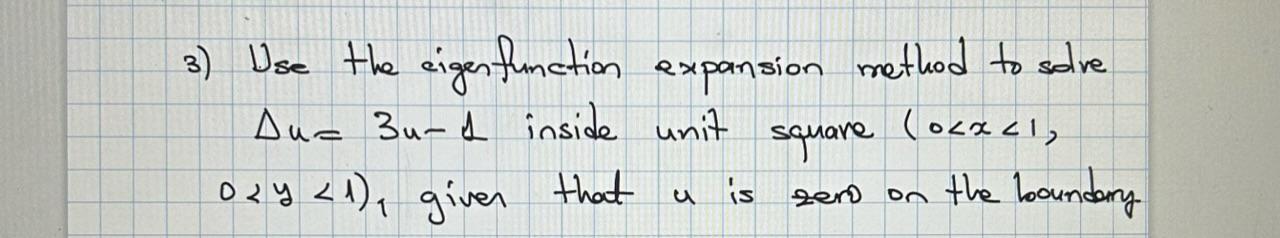 3) Use the eigenfunction expansion method to solve
Δu = 3u - 1 inside unit square (0<x<1,
0<y<1), given that u is zero on the boundary.